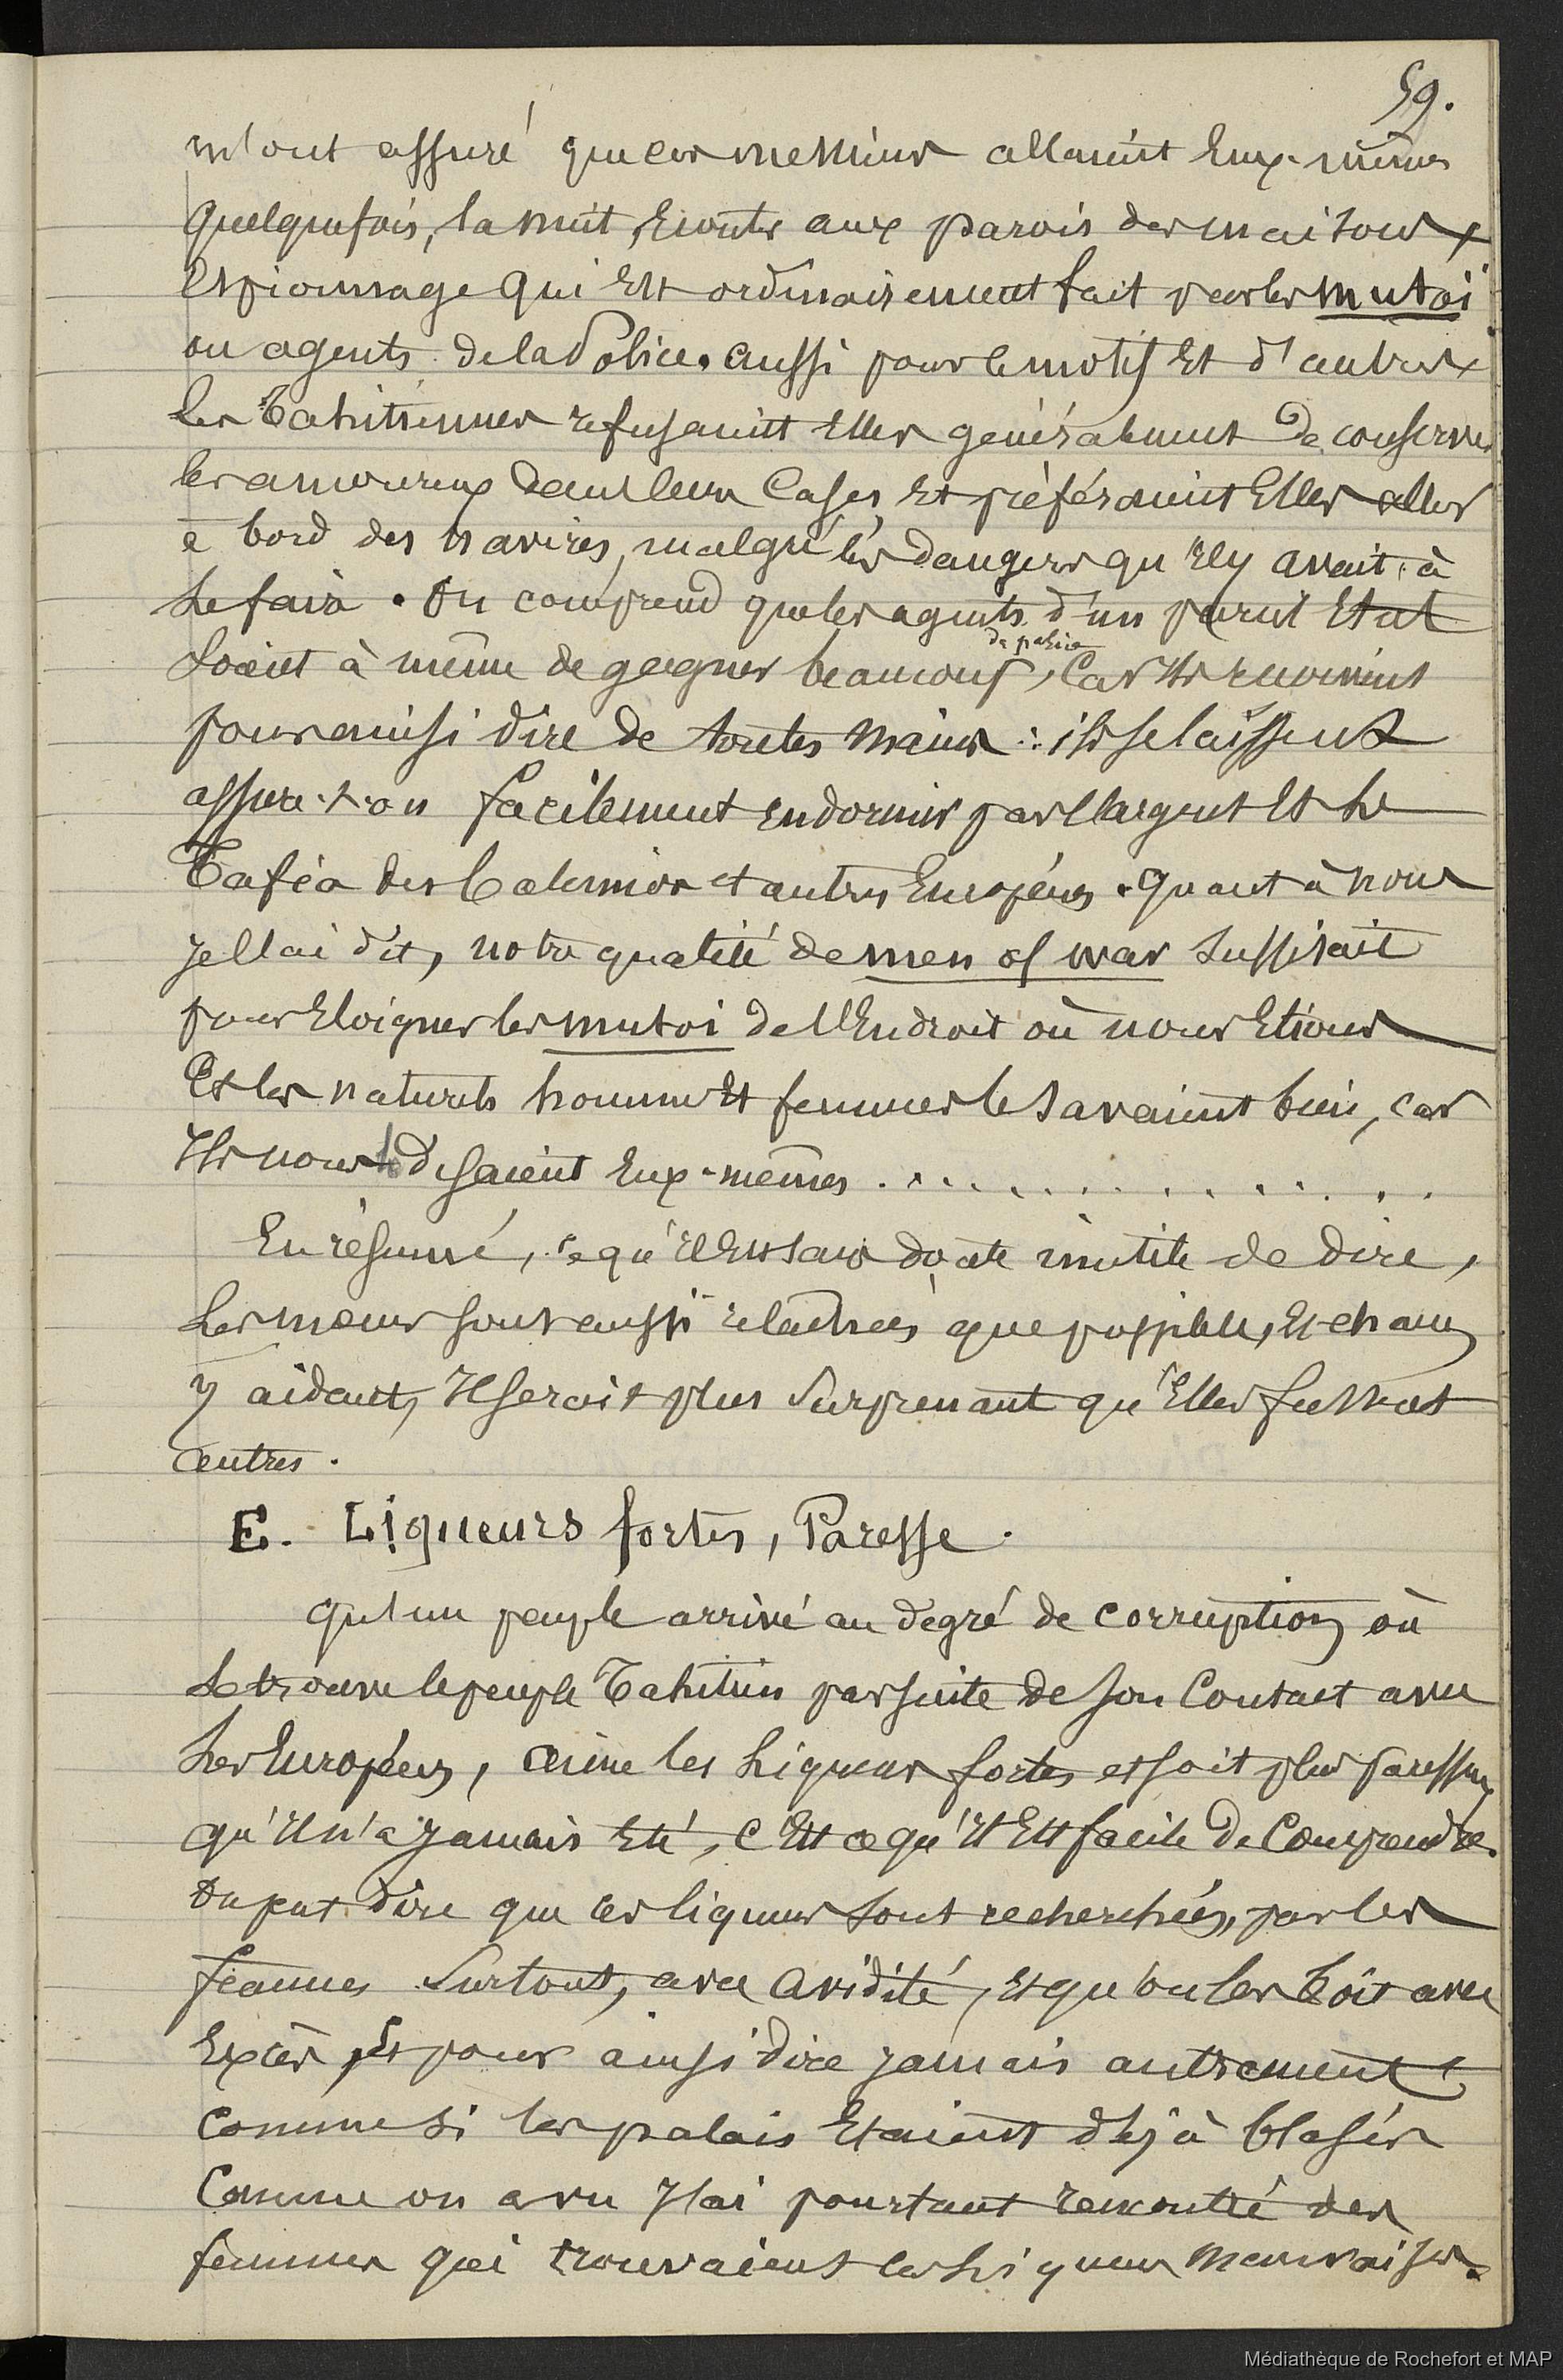 59.
m'ont assuré que ces messieurs allaient Eux-mêmes
quelquefois, la nuit, Ecouter aux parois des maisons
Espionnage qui Est ordinairement fait par les mutoi
ou agents de la Police. Aussi pour ce motif Et d'autres
les Tahitiennes refusaient Elles généralement de conserver
les amoureux dans leurs Cases Et préféraient Elles aller
à bord des navires, malgré les dangers qu'Il y avait à
le faire. On comprend que les agents d'un pareil Etat
de police
Soient à même de gagner beaucoup, Car Ils reçoivent
pour ainsi dire de toutes mains : ils se laissent
assure-t-on facilement Endormir par l'argent Et le
Taféa des Baleiniers et autres Européens. Quant à nous
je l'ai dit, notre qualité de men of war suffisait
pour Eloigner les mutoi de l'Endroit où nous Etions
Et les naturels hommes Et femmes le savaient bien, car
Ils nous le disaient Eux-mêmes . . . . . . . . . . . . .
En résumé, ce qu'Il Est sans doute inutile de dire,
Les mœurs sont aussi relâchées que possible, Et chacun
y aidant, Il serait plus Surprenant qu'Elles fussent
autres.
E. Liqueurs fortes, Paresse.
Qu'un peuple arrivé au degré de corruption où
se trouve le peuple Tahitien par suite de son Contact avec
les Européens, aime les liqueurs fortes et soit plus paresseux
qu'Il n'a jamais Eté, c'Est ce qu'Il Est facile de Comprendre.
On peut dire que ces liqueurs sont recherchées, par les
femmes Surtout, avec avidité, Et qu'on les boit avec
Excès Et pour ainsi dire jamais autrement
Comme si les palais Etaient déjà blasés
Comme on a vu J'ai pourtant rencontré des
femmes qui trouvaient les liqueurs mauvaises.
Médiathèque de Rochefort et MAP